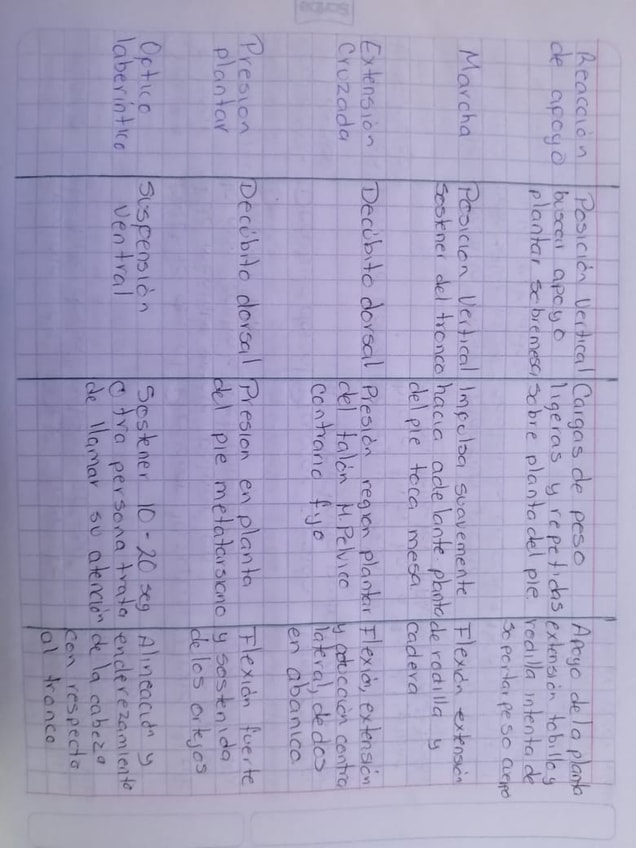 Reacción
de apoyo
Posición Vertical
buscar apoyo
plantar sobre mesa
Cargas de peso
ligeras y repetidas
sobre planta del pie
Apoyo de la planta
extensión tobillo y
rodilla intenta de
soportar peso cuerpo
Marcha
Posición Vertical
Sostener del tronco
Impulsa suavemente
hacia adelante planta
del pie toca mesa
Flexión extensión
de rodilla y
cadera
Extensión
Cruzada
Decúbito dorsal
Presión region plantar
del talón M. Pelvico
contrario fijo
Flexión, extensión
y aducción contra
lateral, dedos
en abanico
Presion
plantar
Decúbito dorsal
Presion en planta
del pie metatarsiano
Flexión fuerte
y sostenida
de los ortejos
Optico
laberíntico
Suspensión
Ventral
Sostener 10-20 seg
Otra persona trata
de llamar su atención
Alineación y
enderezamiento
de la cabeza
con respecto
al tronco